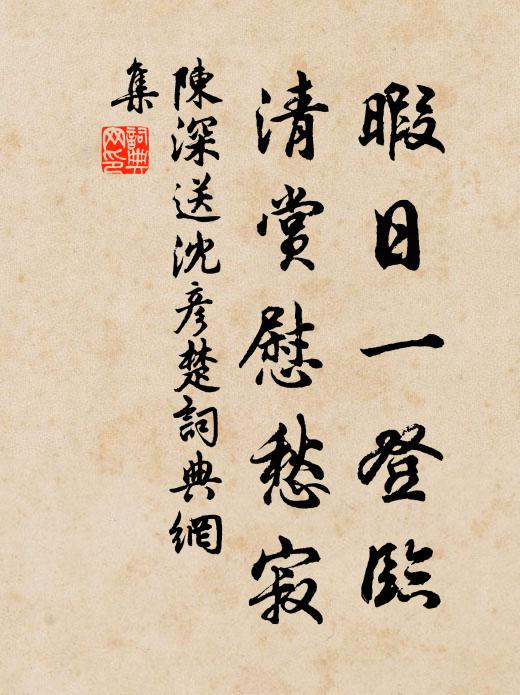 暇日一登臨
清賞慰愁寂
陳深送沈彦楚詞典網
集
詞典網印